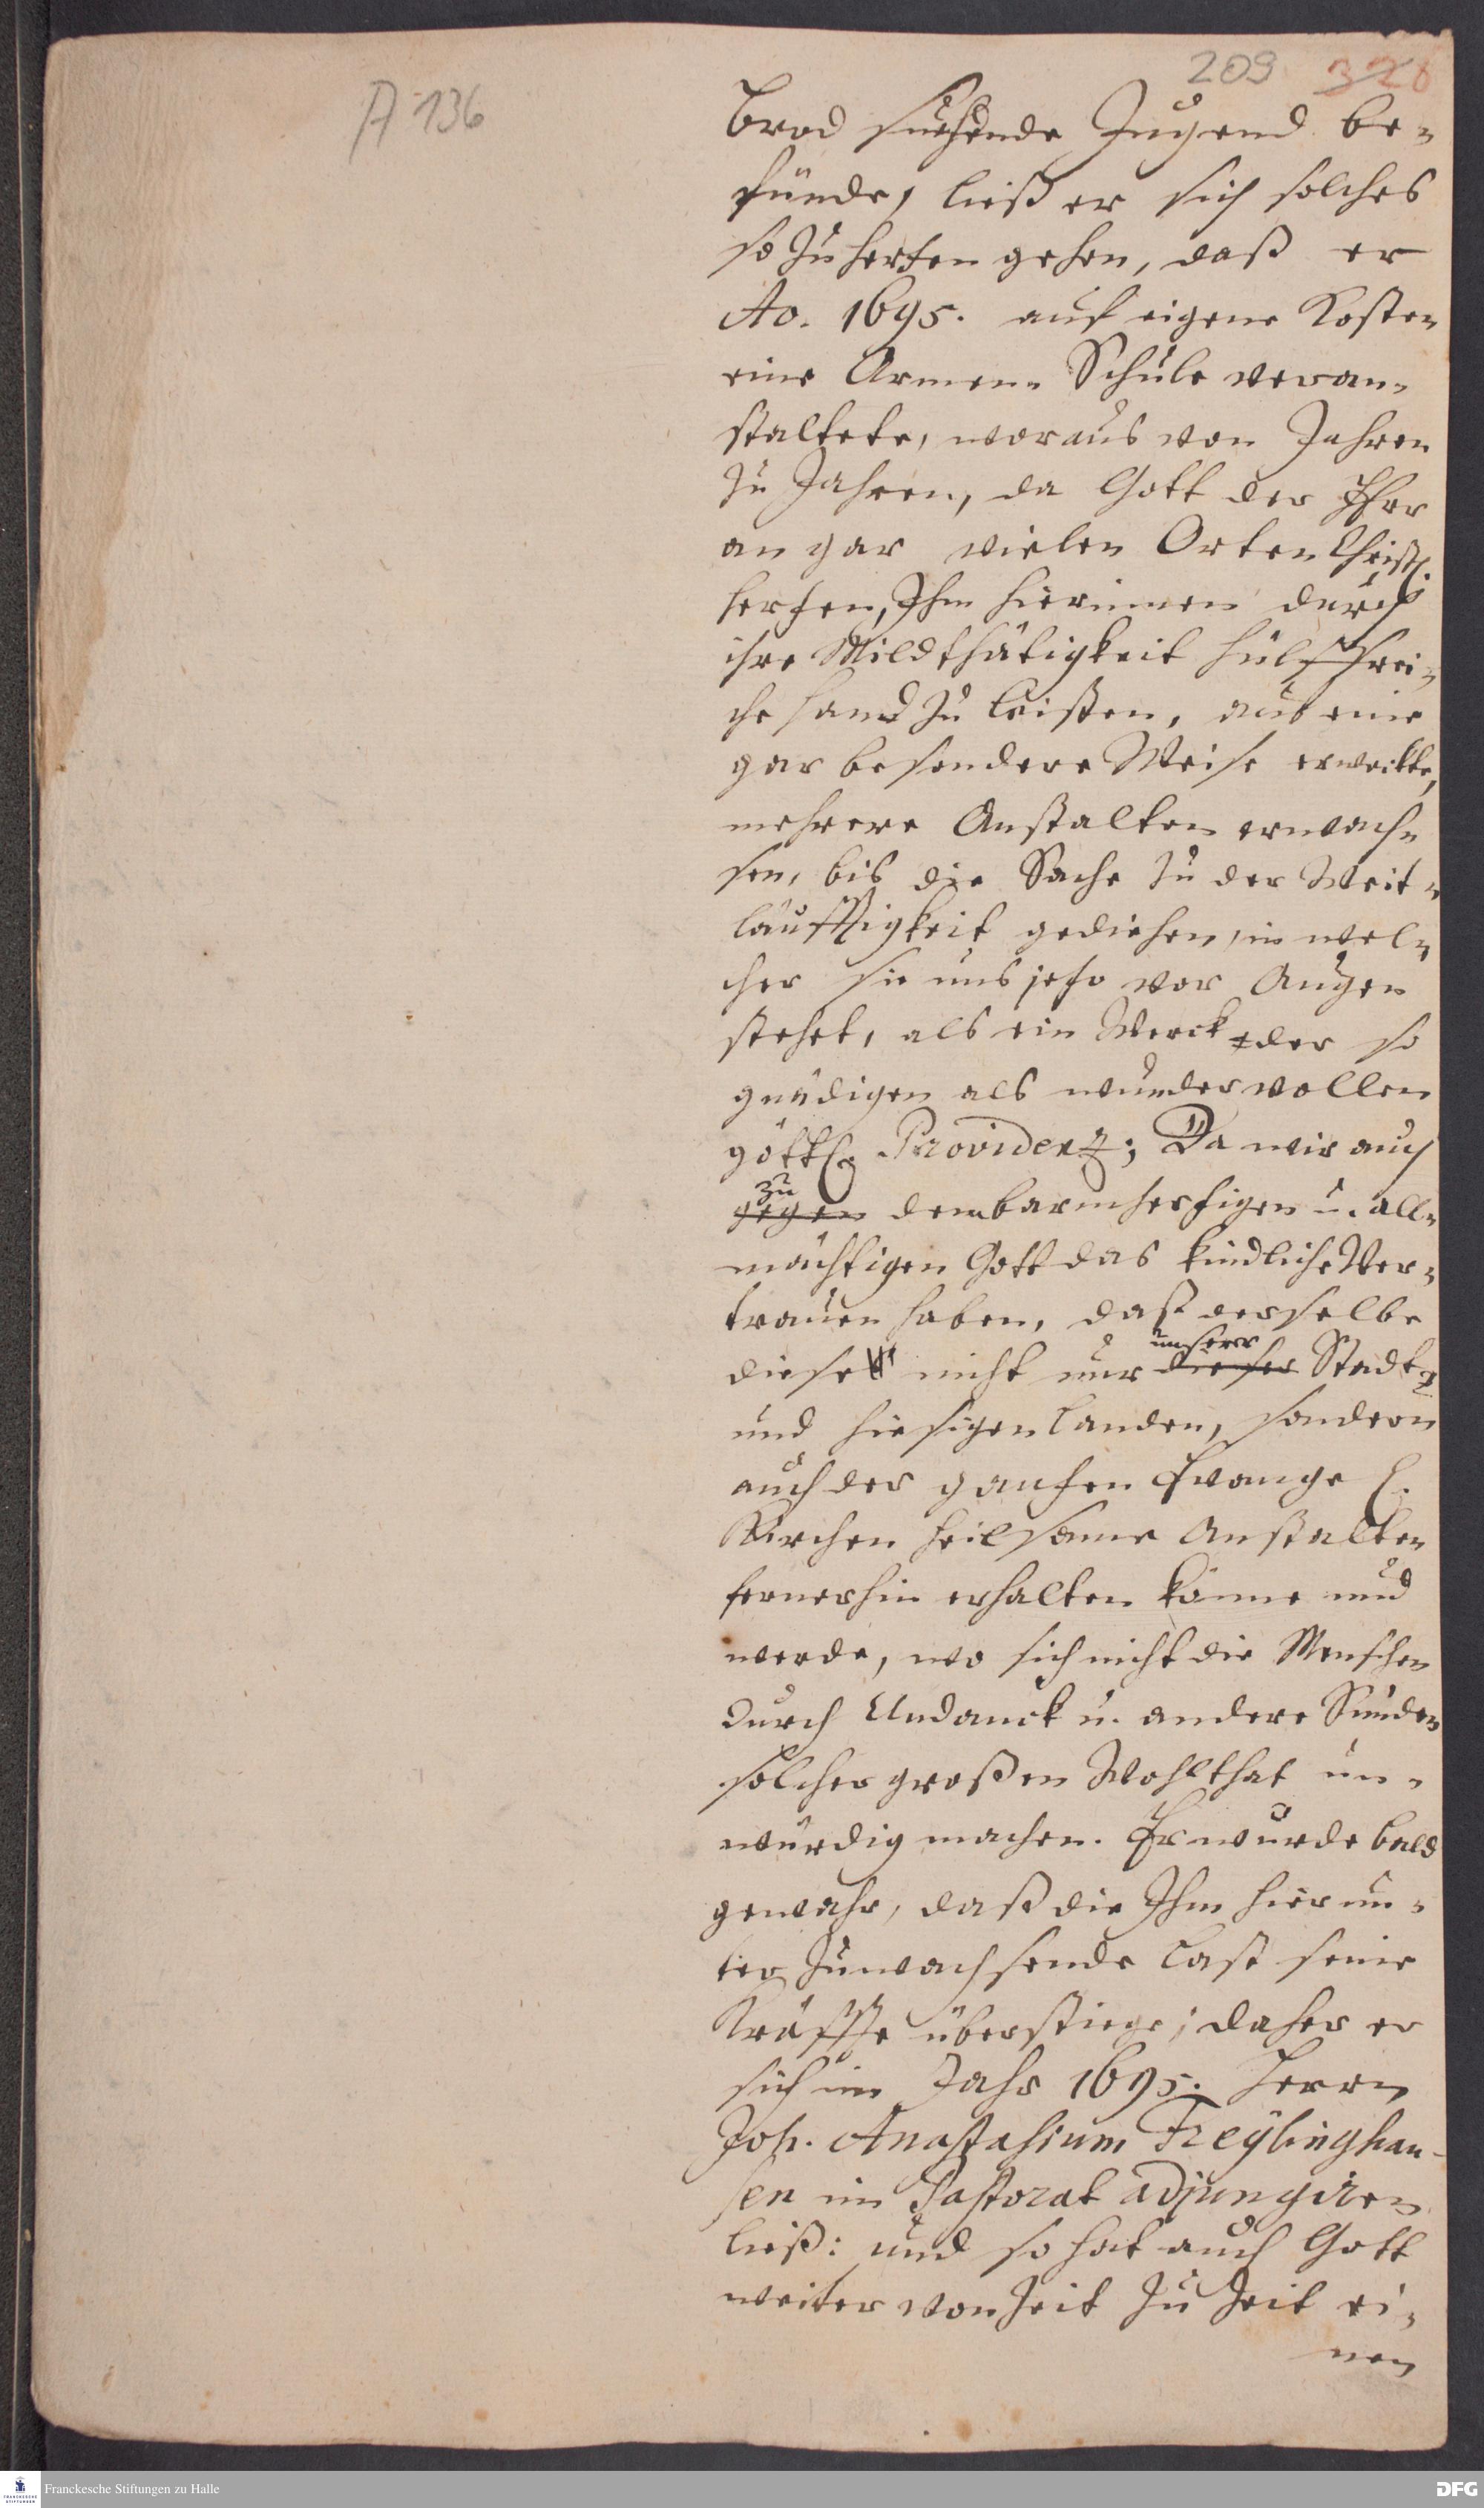 209 328
A 136
Brod suchende Jugend be-
fünde, ließ er sich solches
so zu hertzen gehen, daß er
Ao. 1695. auf eigene Kosten
eine Armen- Schule veran-
staltete, woraus von Jahren
zu Jahren, da Gott der Herr
an gar vielen Orten Christl.
hertzen, Ihm hierinnen durch
ihre Mildthätigkeit hülffrei-
che hand zu leisten, auf eine
gar besondere Weise erweckte,
mehrere Anstalten erwach-
sen, bis die Sache zu der Weit-
läufftigkeit gediehen, in wel-
cher sie uns jetzo vor Augen
stehet, als ein Werck der so
gnädigen als wundervollen
göttl. Providentz; Da wir auch
zu
gegen dem barmhertzigen u. all-
mächtigen Gott das kindliche Ver-
trauen haben, daß derselbe
unserer
diese nicht nur dieser Stadt
und hiesigen Landen, sondern
auch der gantzen Evangel.
Kirchen heilsame Anstalten
fernerhin erhalten könne und
werde, wo sich nicht die Menschen
durch Undanck u. andere Sünden
solcher großen Wohlthat un-
würdig machen. Er wurde bald
gewahr, daß die Ihm hierun-
ter zuwachsende Last seine
Kräffte überstiege; daher er
sich im Jahr 1695. Herrn
Joh. Anastasium Freÿlinghau-
sen im Pastorat adjungiren
ließ: und so hat auch Gott
weiter von Zeit zu Zeit ei-
nen
Franckesche Stiftungen zu Halle
DFG